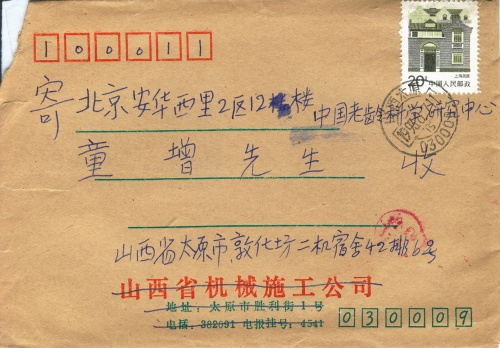 100011
20
上海民居
中国人民邮政
寄 北京安华西里2区12楼
中国老龄科学研究中心
童增先生 收
山西省太原市敦化坊二机宿舍42排6号
山西省机械施工公司
地址：太原市胜利街1号
电话：382091 电报挂号：4541
030009